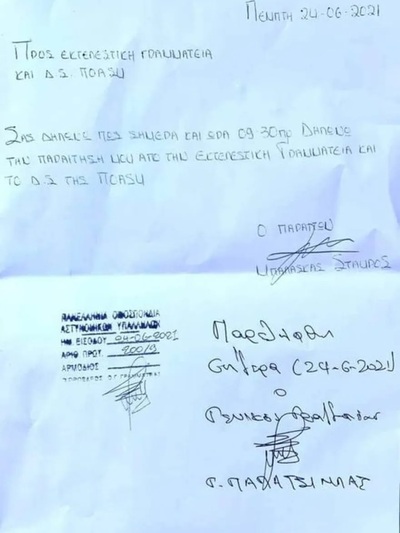 ΠΕΜΠΤΗ 24-06-2021
ΠΡΟΣ ΕΚΤΕΛΕΣΤΙΚΗ ΓΡΑΜΜΑΤΕΙΑ
ΚΑΙ Δ.Σ. ΠΟΑΣΥ
ΣΑΣ ΔΗΛΩΝΩ ΠΩΣ ΣΗΜΕΡΑ ΚΑΙ ΩΡΑ 09.30πμ ΔΗΛΩΝΩ
ΤΗΝ ΠΑΡΑΙΤΗΣΗ ΜΟΥ ΑΠΟ ΤΗΝ ΕΚΤΕΛΕΣΤΙΚΗ ΓΡΑΜΜΑΤΕΙΑ ΚΑΙ
ΤΟ Δ.Σ ΤΗΣ ΠΟΑΣΥ
Ο ΠΑΡΑΙΤΩΝ
ΜΠΑΛΑΣΚΑΣ ΣΤΑΥΡΟΣ
ΠΑΝΕΛΛΗΝΙΑ ΟΜΟΣΠΟΝΔΙΑ
ΑΣΤΥΝΟΜΙΚΩΝ ΥΠΑΛΛΗΛΩΝ
ΗΜ. ΕΙΣΟΔΟΥ 24-06-2021
ΑΡΙΘ ΠΡΩΤ. 200/3
ΑΡΜΟΔΙΟΣ
Παρελήφθη
Σήμερα (24-6-2021)
Ο
Γενικός Γραμματέας
Γ. ΠΑΠΑΤΣΙΜΠΑΣ